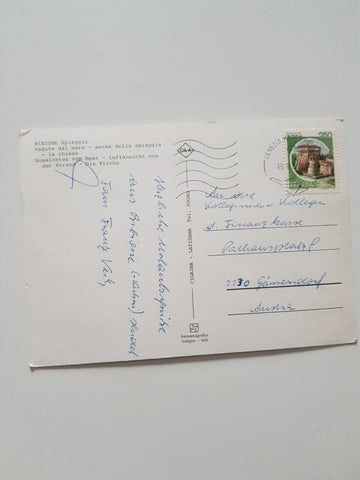 BIBIONE Spiaggia
Vedute dal mare - aerea della spiaggia
- la chiesa
Aussichten vom Meer - Luftansicht von
der Strand - Die Kirche
Herzliche Urlaubsgrüße
aus Bibione (Italien) sendet
Fam. Franz
CIGAINA - LATISANA Tel.
bologna - italy
VENEZIA
An die
Kolleginnen Kollegen
d. Finanzkasse
Rathausplatz 9
2230 Gänserndorf
Austria